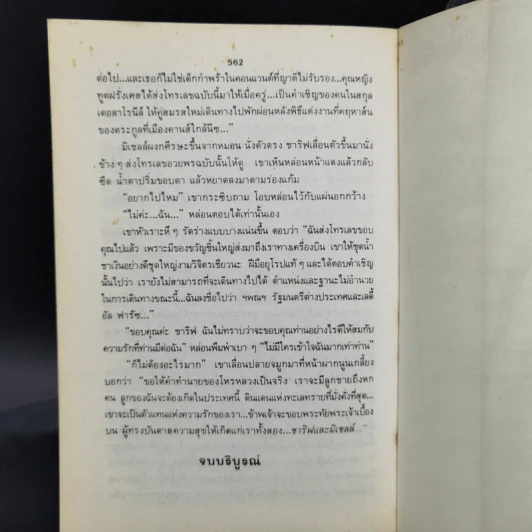 562
ต่อไป...และเธอก็ไม่ใช่เด็กกำพร้าในคอนแวนต์ที่ญาติไม่รับรอง...คุณหญิง
ทูตฝรั่งเศสได้ส่งโทรเลขฉบับนี้มาให้เมื่อครู่...เป็นคำเชิญของคนในสกุล
เดอลาโรนีส์ ให้คู่สมรสใหม่เดินทางไปพักผ่อนหลังพิธีแต่งงานที่คฤหาสน์
ของตระกูลที่เมืองคานส์ใกล้นีซ..."
มิเชลล์ผงกศีรษะขึ้นจากหมอน นั่งตัวตรง ชารีฟเลื่อนตัวขึ้นมานั่ง
ข้าง ๆ ส่งโทรเลขอวยพรฉบับนั้นให้ดู เขาเห็นหล่อนหน้าแดงแล้วกลับ
ซีด น้ำตาปริ่มขอบตา แล้วหยาดลงมาตามร่องแก้ม
"อยากไปไหม" เขากระซิบถาม โอบหล่อนไว้กับแผ่นอกกว้าง
"ไม่ค่ะ...ฉัน..." หล่อนตอบได้เท่านั้นเอง
เขาหัวเราะหึ ๆ รัดร่างแบบบางแน่นขึ้น ตอบว่า "ฉันส่งโทรเลขขอบ
คุณไปแล้ว เพราะมีของขวัญชิ้นใหญ่ส่งมาถึงเราทางเครื่องบิน เขาให้ชุดน้ำ
ชาเงินอย่างดีชุดใหญ่งามวิจิตรเชียวนะ ฝีมือยุโรปแท้ ๆ และได้ตอบคำเชิญ
นั้นไปว่า เรายังไม่สามารถที่จะเดินทางไปได้ ตำแหน่งและฐานะไม่อำนวย
ในการเดินทางขณะนี้...ฉันลงชื่อไปว่า ฯพณฯ รัฐมนตรีต่างประเทศและเลดี้
อัล ฟารัซ..."
"ขอบคุณค่ะ ชารีฟ ฉันไม่ทราบว่าจะขอบคุณท่านอย่างไรดีให้สมกับ
ความรักที่ท่านมีต่อฉัน" หล่อนพึมพำเบา ๆ "ไม่มีใครเข้าใจฉันมากเท่าท่าน"
"ก็ไม่ต้องอะไรมาก" เขาเลื่อนปลายจมูกมาที่หน้าผากนูนเกลี้ยง
บอกว่า "ขอให้คำทำนายของโหรหลวงเป็นจริง เราจะมีลูกชายถึงหก
คน ลูกของฉันจะต้องเกิดในประเทศนี้ ดินแดนแห่งทะเลทรายที่มั่งคั่งที่สุด...
เขาจะเป็นตัวแทนแห่งความรักของเรา...ข้าพเจ้าจะขอบพระทัยพระเจ้าเบื้อง
บน ผู้ทรงบันดาลความสุขให้เกิดแก่เราทั้งสอง...ชารีฟและมิเชลล์..."
จบบริบูรณ์